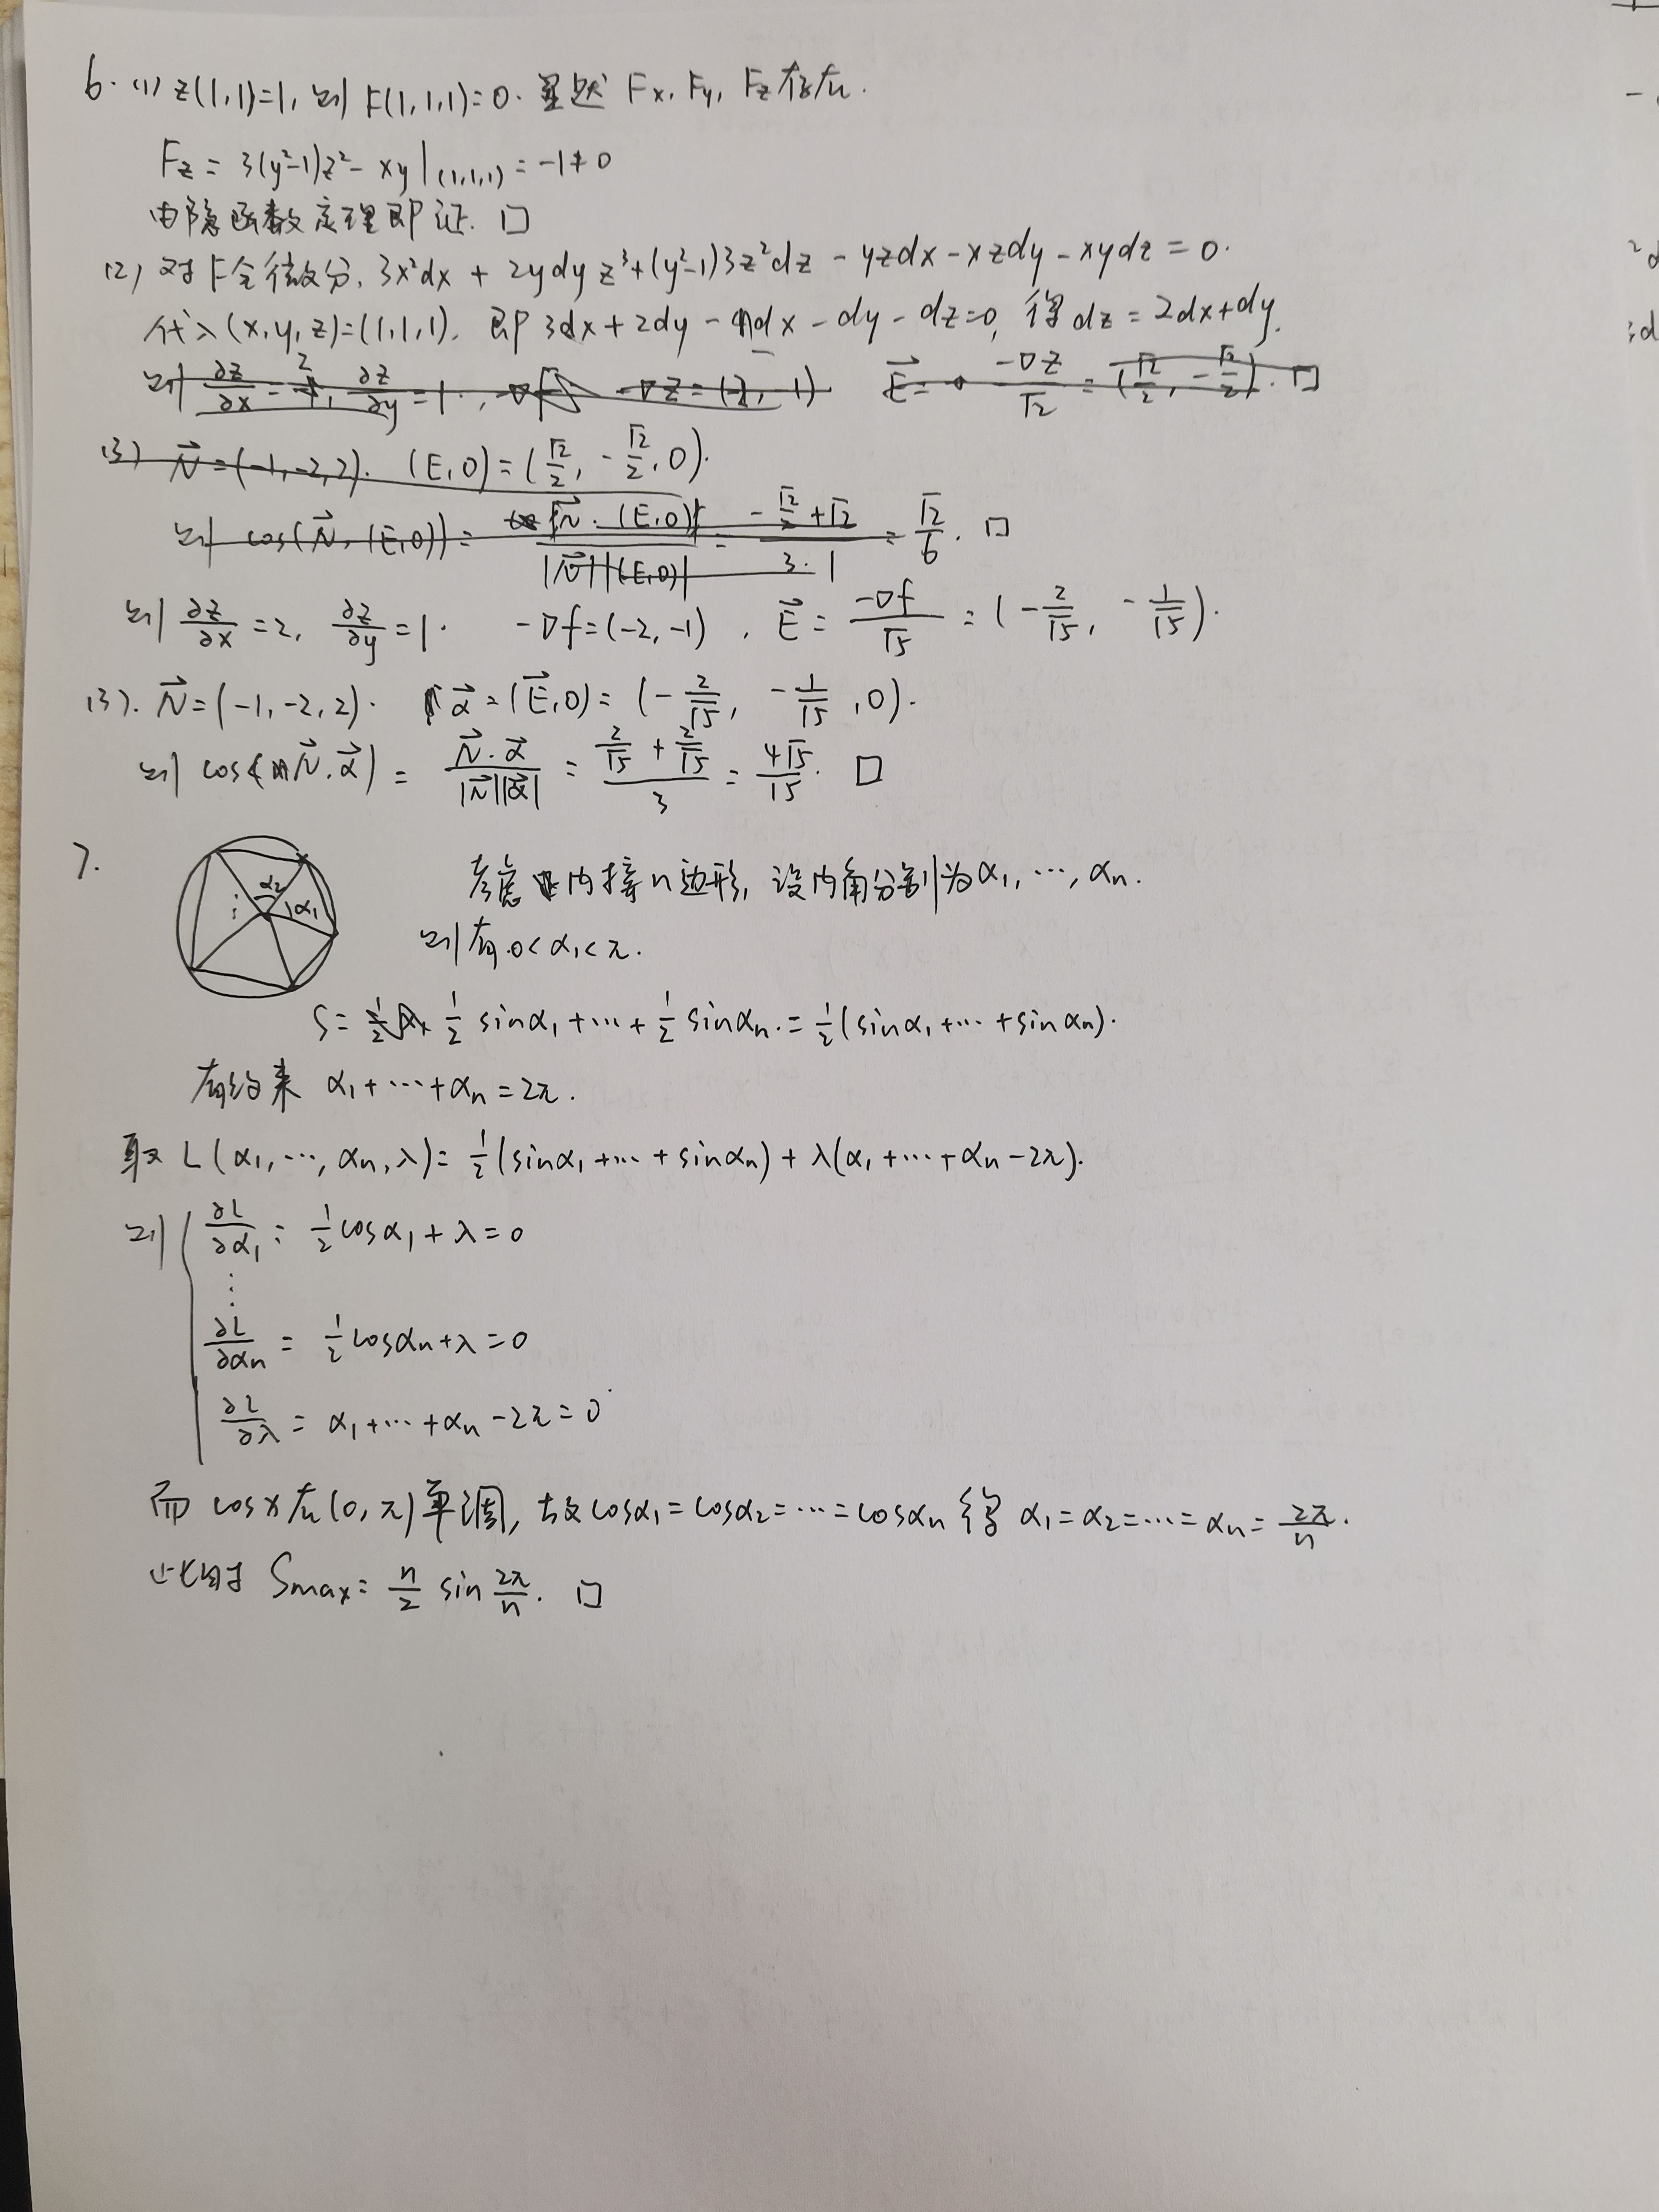 6. (1) z(1,1)=1, 则 F(1,1,1)=0. 显然 Fx, Fy, Fz 存在.
Fz = 3(y²-1)z² - xy|(1,1,1) = -1≠0
由隐函数定理即证. □
(2) 对F全微分, 3x²dx + 2ydy z³+(y²-1)3z²dz - yzdx - xzdy - xydz = 0.
代入(x,y,z)=(1,1,1). 即 3dx+2dy-dx-dy-dz=0, 得dz=2dx+dy.
则 ∂z/∂x = 2, ∂z/∂y = 1. -∇z = (-2, -1) E⃗ = -∇z/√2 = (√2/2, -√2/2). □
(3) N⃗=(-1,-2,2). (E,0)=(√2/2, -√2/2, 0).
则 cos(N⃗, (E,0)) = |N⃗·(E,0)|/|N⃗||(E,0)| = (-√2/2+√2)/(3·1) = √2/6. □
则 ∂z/∂x=2, ∂z/∂y=1. -∇f=(-2,-1), E⃗ = -∇f/√5 = (-2/√5, -1/√5).
(3). N⃗=(-1,-2,2). α⃗=(E⃗,0)=(-2/√5, -1/√5, 0).
则 cos(N⃗,α⃗) = N⃗·α⃗/|N⃗||α⃗| = (2/√5+2/√5)/3 = 4√5/15. □
7. α₂ α₁ ⋮
考虑内接n边形, 设内角分别为α₁, …, αn.
则有 0<α₁<π.
S = 1/2 sinα₁ + … + 1/2 sinαn. = 1/2(sinα₁+…+sinαn).
有约束 α₁+…+αn=2π.
取 L(α₁,…,αn,λ)=1/2(sinα₁+…+sinαn)+λ(α₁+…+αn-2π).
则 { ∂L/∂α₁ = 1/2cosα₁+λ=0
⋮
∂L/∂αn = 1/2cosαn+λ=0
∂L/∂λ = α₁+…+αn-2π=0
而 cosx在(0,π)单调, 故cosα₁=cosα₂=…=cosαn 得 α₁=α₂=…=αn=2π/n.
此时 Smax = n/2 sin 2π/n. □